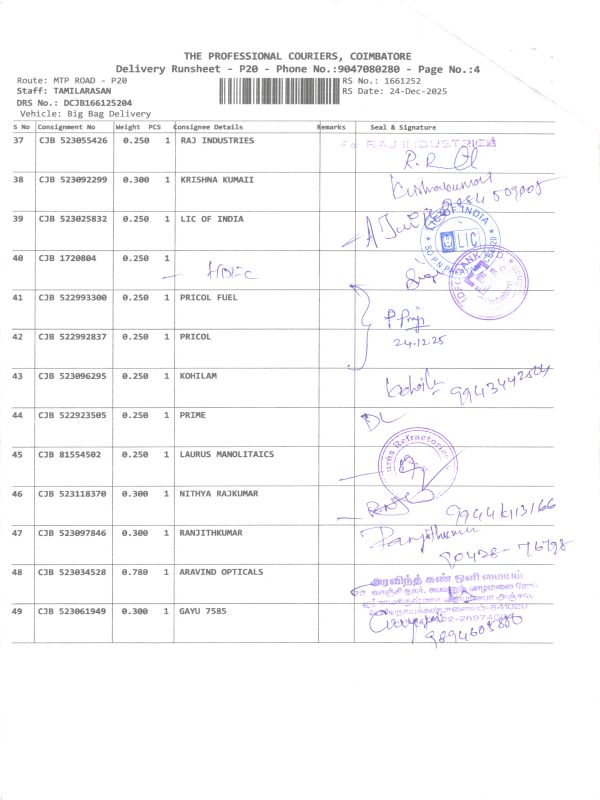 THE PROFESSIONAL COURIERS, COIMBATORE
Delivery Runsheet - P20 - Phone No.:9047080280 - Page No.:4
Route: MTP ROAD - P20
RS No.: 1661252
Staff: TAMILARASAN
RS Date: 24-Dec-2025
DRS No.: DCJB166125204
Vehicle: Big Bag Delivery
S No Consignment No Weight PCS Consignee Details Remarks Seal & Signature
37 CJB 523055426 0.250 1 RAJ INDUSTRIES
RAJ INDUSTRIES
38 CJB 523092299 0.300 1 KRISHNA KUMAII
Krishnakumar
39 CJB 523025832 0.250 1 LIC OF INDIA
LIC OF INDIA
LIC
40 CJB 1720804 0.250 1
IDFC BANK LTD
41 CJB 522993300 0.250 1 PRICOL FUEL
42 CJB 522992837 0.250 1 PRICOL
24.12.25
43 CJB 523096295 0.250 1 KOHILAM
9943442504
44 CJB 522923505 0.250 1 PRIME
DL
45 CJB 81554502 0.250 1 LAURUS MANOLITAICS
Refractories
46 CJB 523118370 0.300 1 NITHYA RAJKUMAR
47 CJB 523097846 0.300 1 RANJITHKUMAR
Ranjithkumar
90428-76798
48 CJB 523034528 0.780 1 ARAVIND OPTICALS
அரவிந்த் கண் ஒளி மையம்
49 CJB 523061949 0.300 1 GAYU 7585